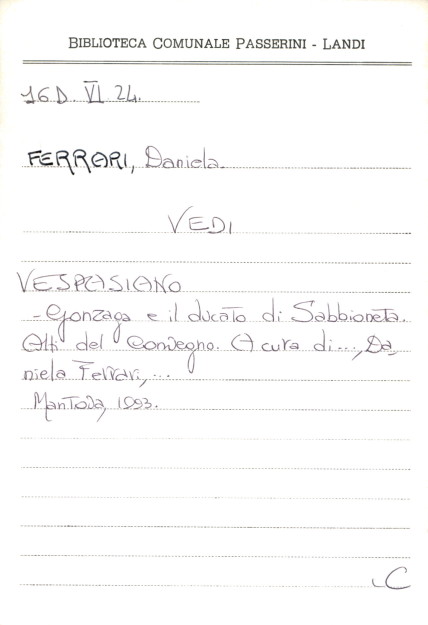 BIBLIOTECA COMUNALE PASSERINI - LANDI
16D. VI 24.
FERRARI, Daniela.
VEDI
VESPASIANO
- Gonzaga e il ducato di Sabbioneta.
Atti del Convegno. A cura di..., Da,
niela Ferrari, ...
Mantova, 1993.
C